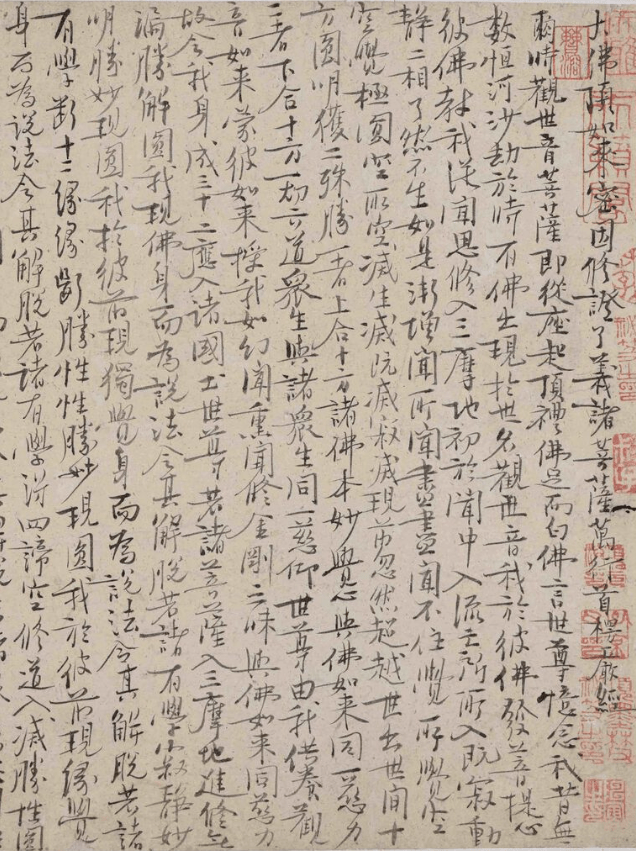 大佛頂如來密因修證了義諸菩薩萬行首楞嚴經
爾時觀世音菩薩即從座起頂禮佛足而白佛言世尊憶念我昔無
數恒河沙劫於時有佛出現於世名觀世音我於彼佛發菩提心
彼佛教我從聞思修入三摩地初於聞中入流亡所所入既寂動
靜二相了然不生如是漸增聞所聞盡盡聞不住覺所覺空
空覺極圓空所空滅生滅既滅寂滅現前忽然超越世出世間十
方圓明獲二殊勝一者上合十方諸佛本妙覺心與佛如來同一慈力
二者下合十方一切六道眾生與諸眾生同一悲仰世尊由我供養觀
音如來蒙彼如來授我如幻聞熏聞修金剛三昧與佛如來同慈力
故令我身成三十二應入諸國土世尊若諸菩薩入三摩地進修無
漏勝解圓我現佛身而為說法令其解脫若諸有學寂靜妙
明勝妙現圓我於彼前現獨覺身而為說法令其解脫若諸
有學斷十二緣緣斷勝性性勝妙現圓我於彼前現緣覺
身而為說法令其解脫若諸有學得四諦空修道入滅勝性圓